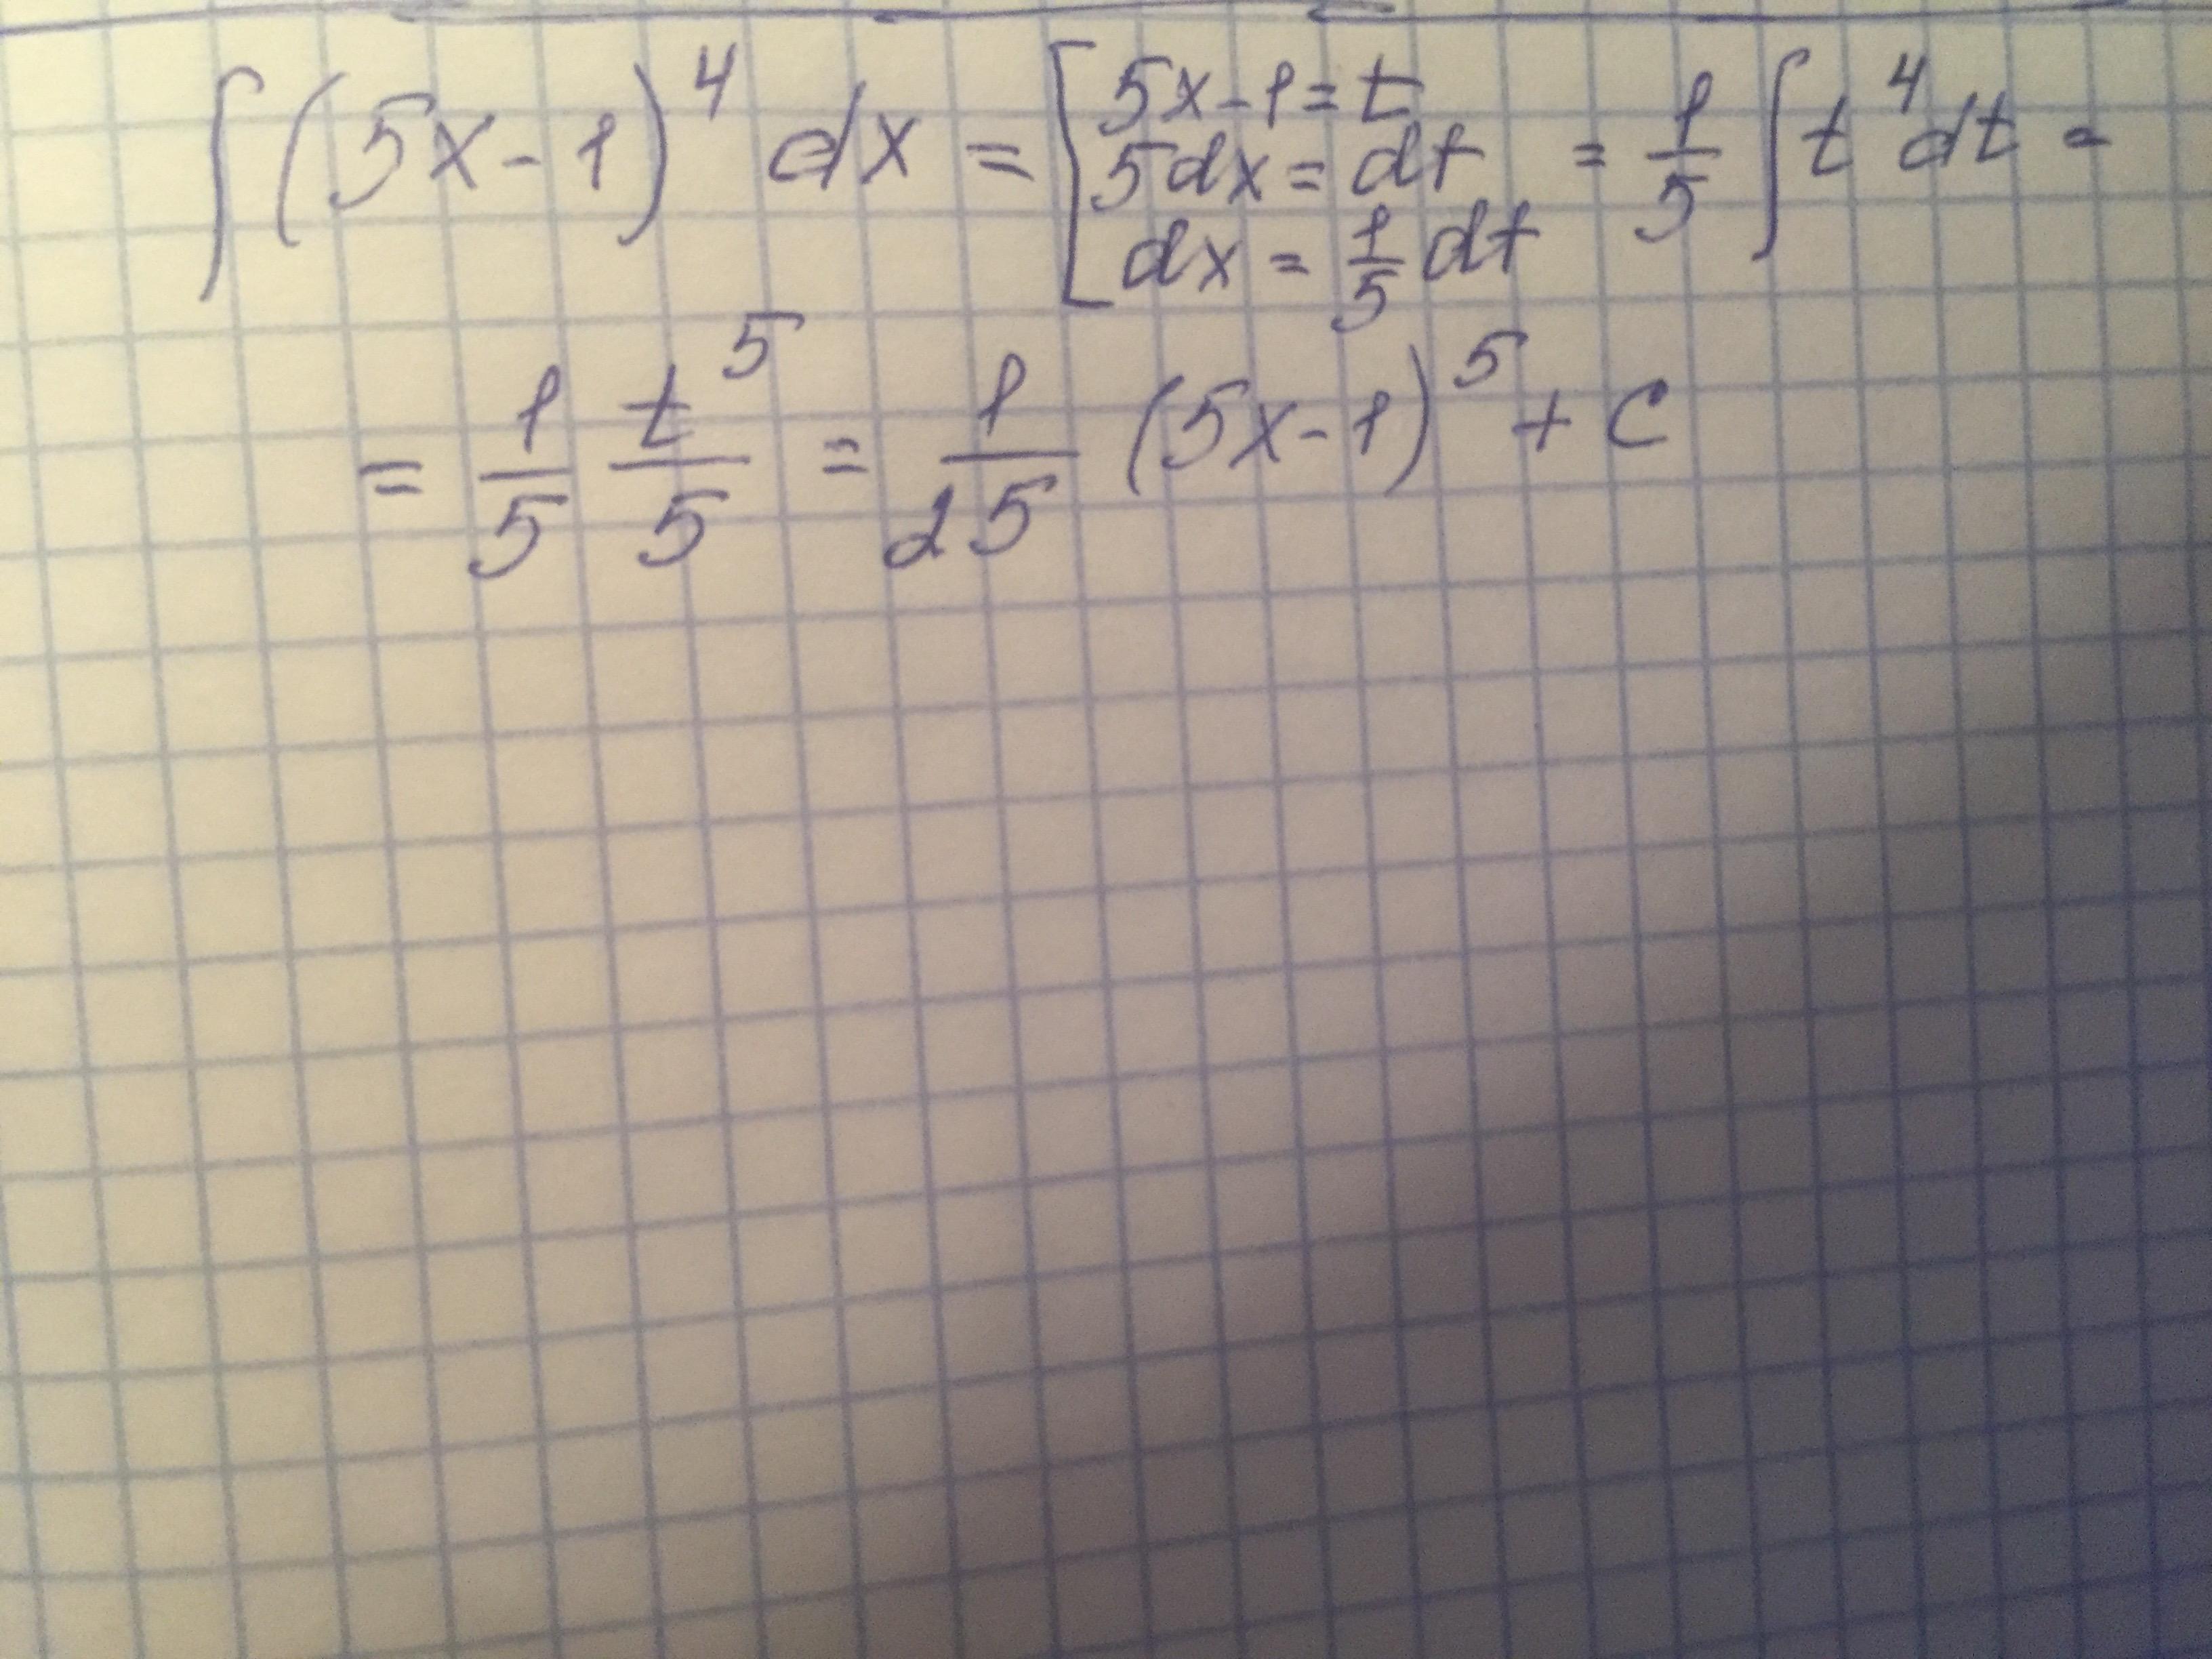 ∫(5x-1)⁴ dx = [5x-1=t 5dx=dt dx=1/5 dt = 1/5 ∫t⁴dt =
= 1/5 t⁵/5 = 1/25 (5x-1)⁵ + C